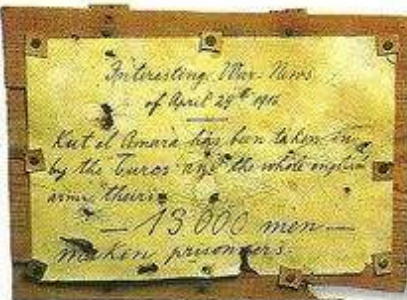 Interesting War-News
of April 29th 1916
Kut el Amara has been taken in
by the Turcs and the whole english
army therin
— 13 000 men —
maken prisoners.